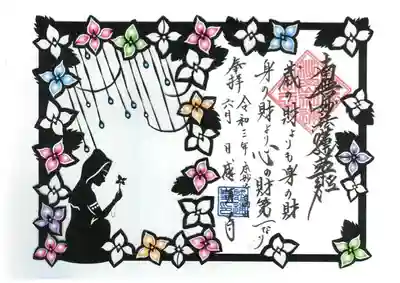 南無妙法蓮華経
蔵の財よりも身の財
身の財より心の財第一なり
奉拝
令和三年
六月 日